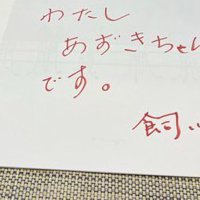 わたし
あずきちゃん
です。
飼い